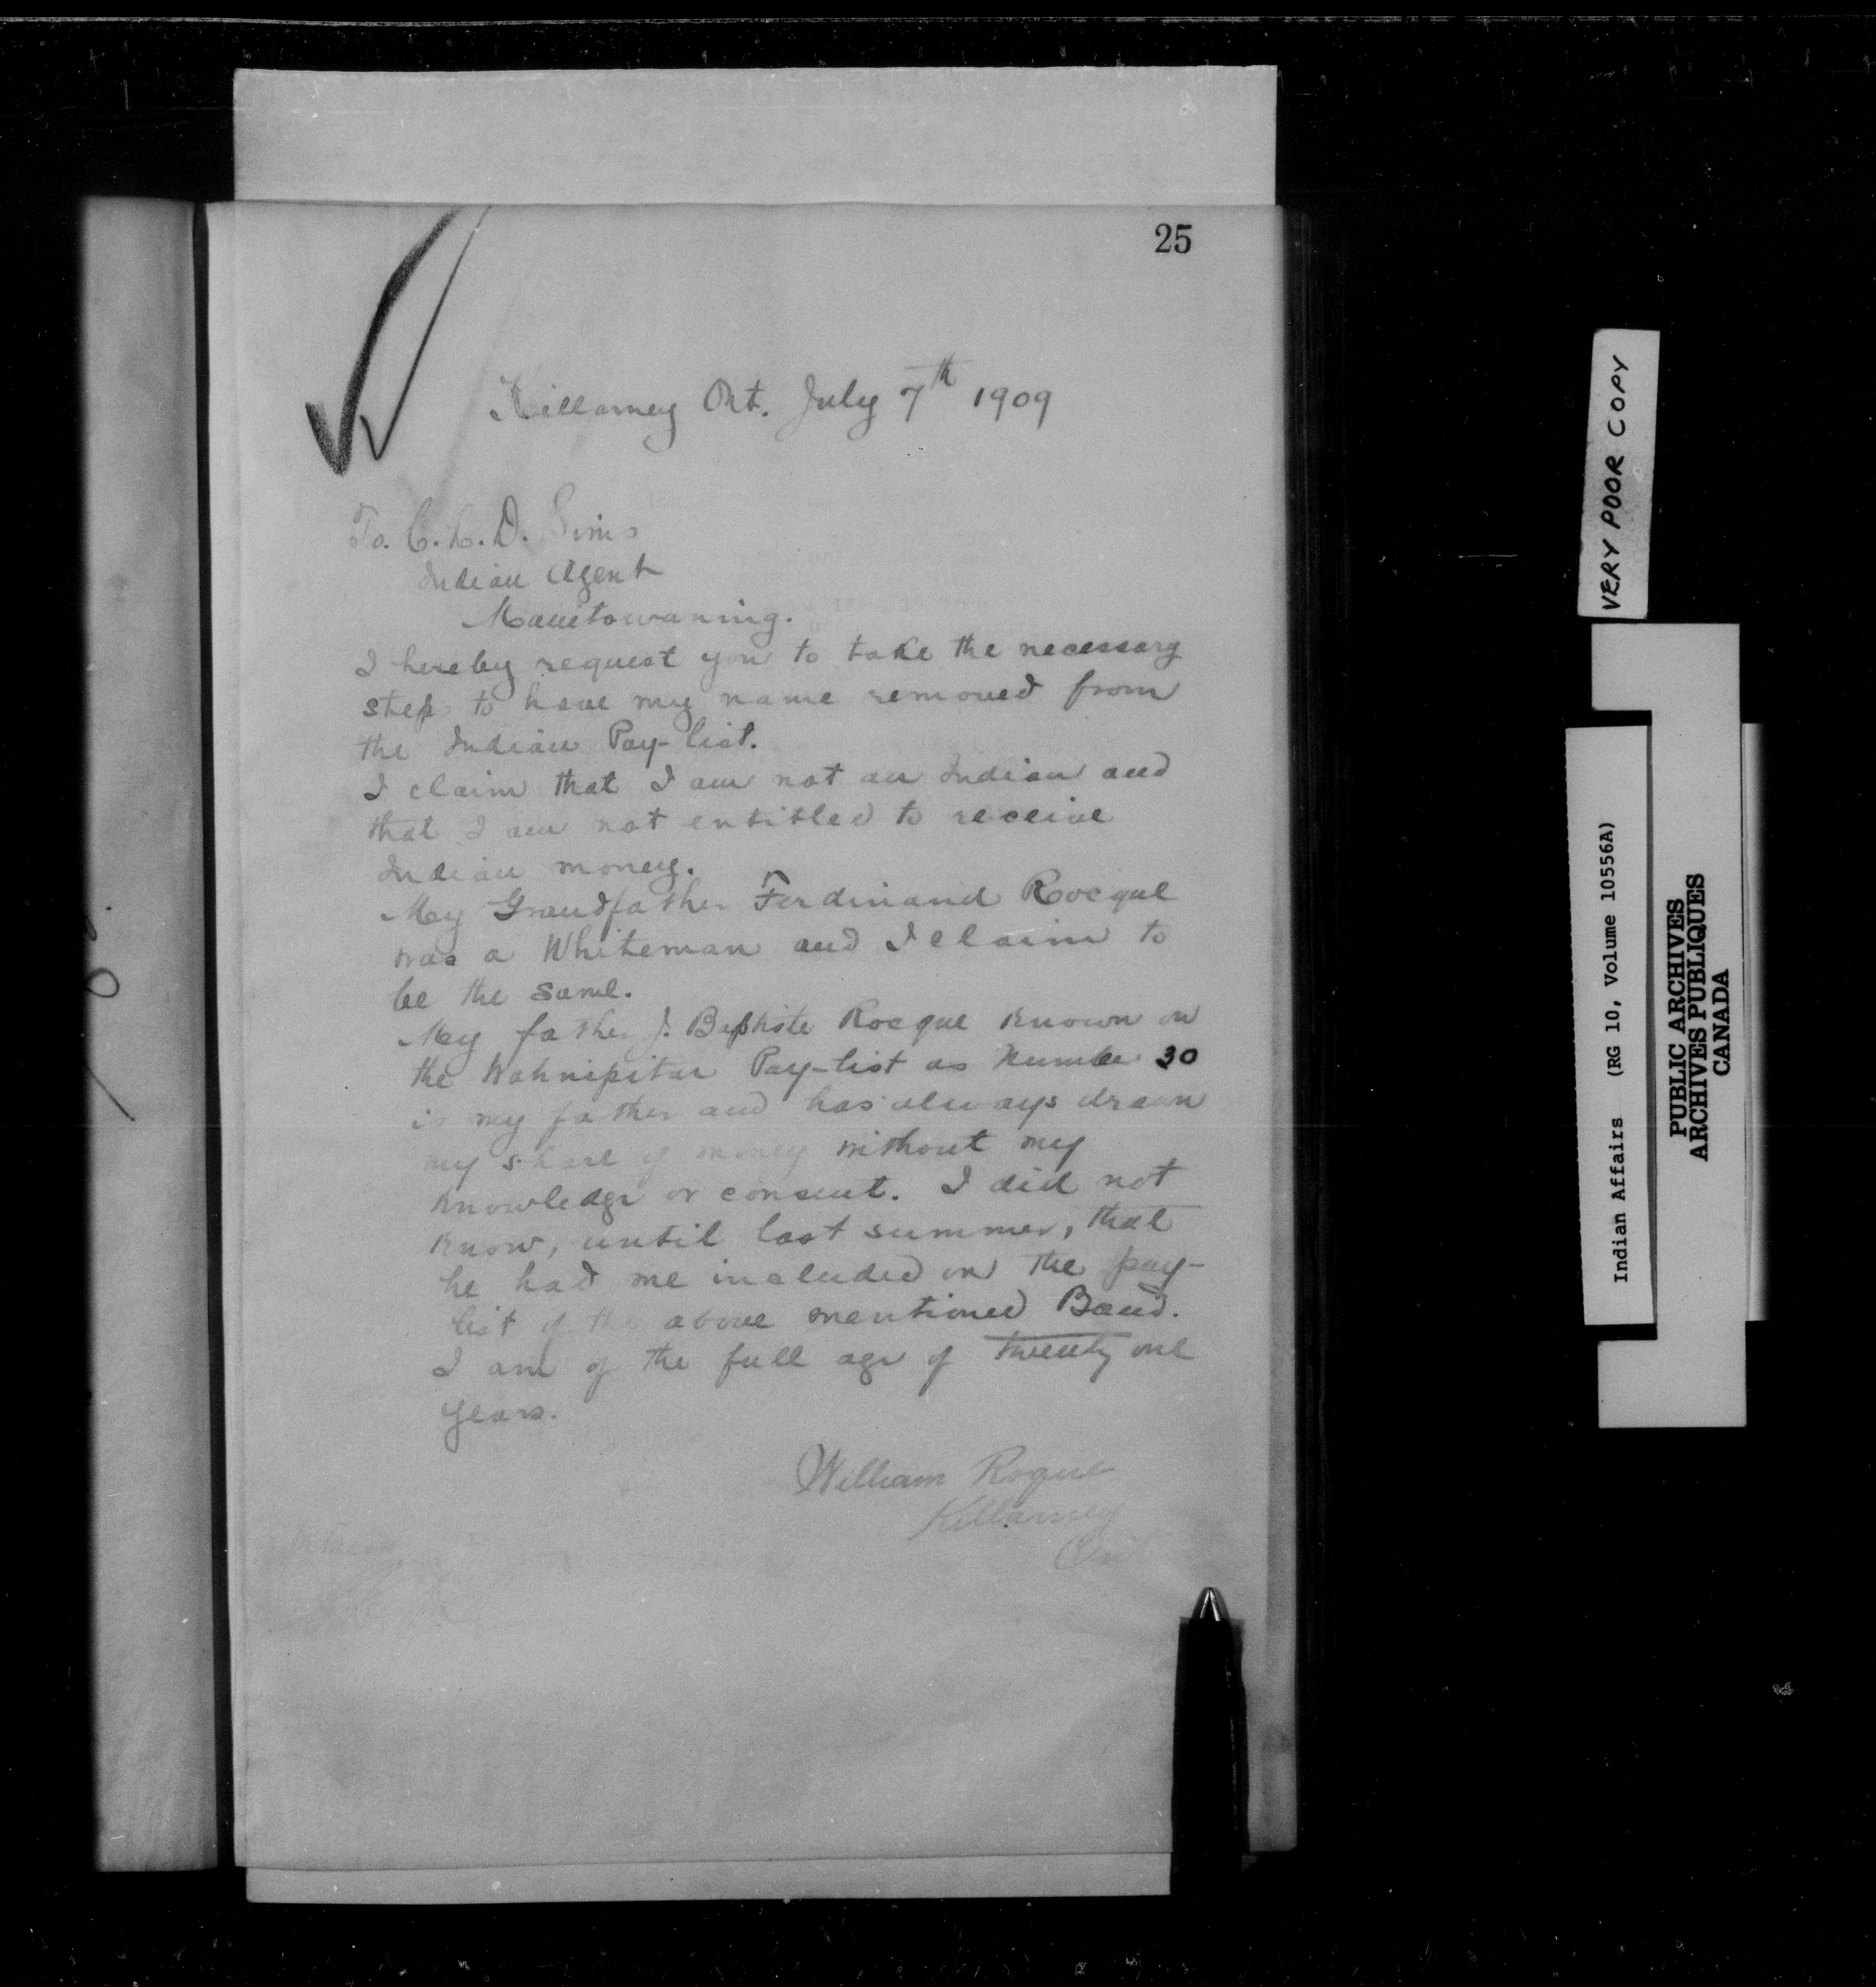 25
Killarney Ont. July 7th 1909
To. C. L. D. Sims
Indian Agent
Manitowaning.
I hereby request you to take the necessary
step to have my name removed from
the Indian Pay-list.
I claim that I am not an Indian and
that I am not entitled to receive
Indian money.
My Grandfather Ferdinand Rocque
was a Whiteman and I claim to
be the same.
My father J. Baptiste Rocque known on
the Wahnipitae Pay-list as Number 30
is my father and has always drawn
my share of money without my
knowledge or consent. I did not
know, until last summer, that
he had me included on the pay-
list of the above mentioned Band.
I am of the full age of twenty one
years.
William Roque
Killarney
Ont
VERY POOR COPY
Indian Affairs (RG 10, Volume 10556A)
PUBLIC ARCHIVES
ARCHIVES PUBLIQUES
CANADA